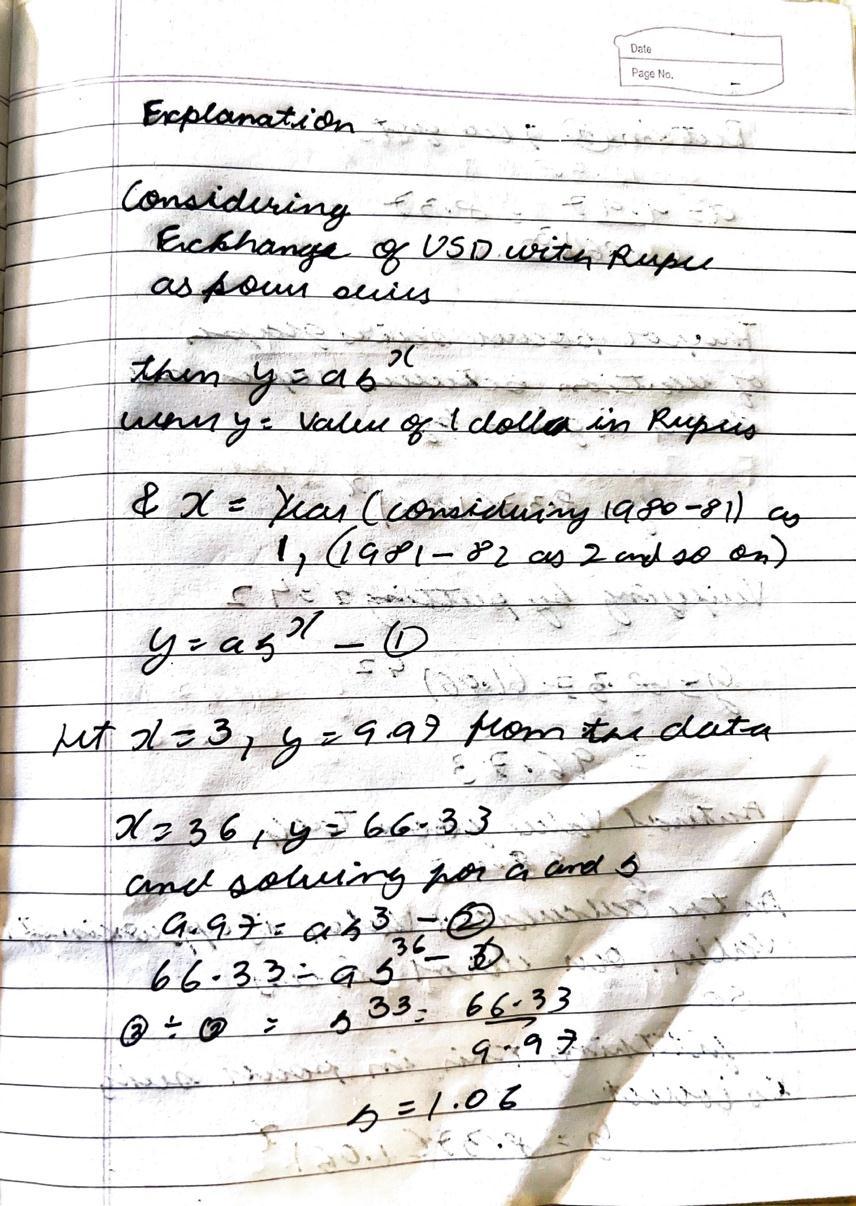 Date
Page No.
Explanation
Considering
Exchange of USD with Rupee
as power series
then y = ab^x
where y = Value of 1 dollar in Rupees
& x = Year (considering 1980-81) as
1, (1981-82 as 2 and so on)
y = ab^x — ①
Let x = 3, y = 9.97 from the data
x = 36, y = 66.33
and solving for a and b
9.97 = ab^3 — ②
66.33 = ab^36 — ③
③ ÷ ② = b^33 = 66.33
9.97
b = 1.06